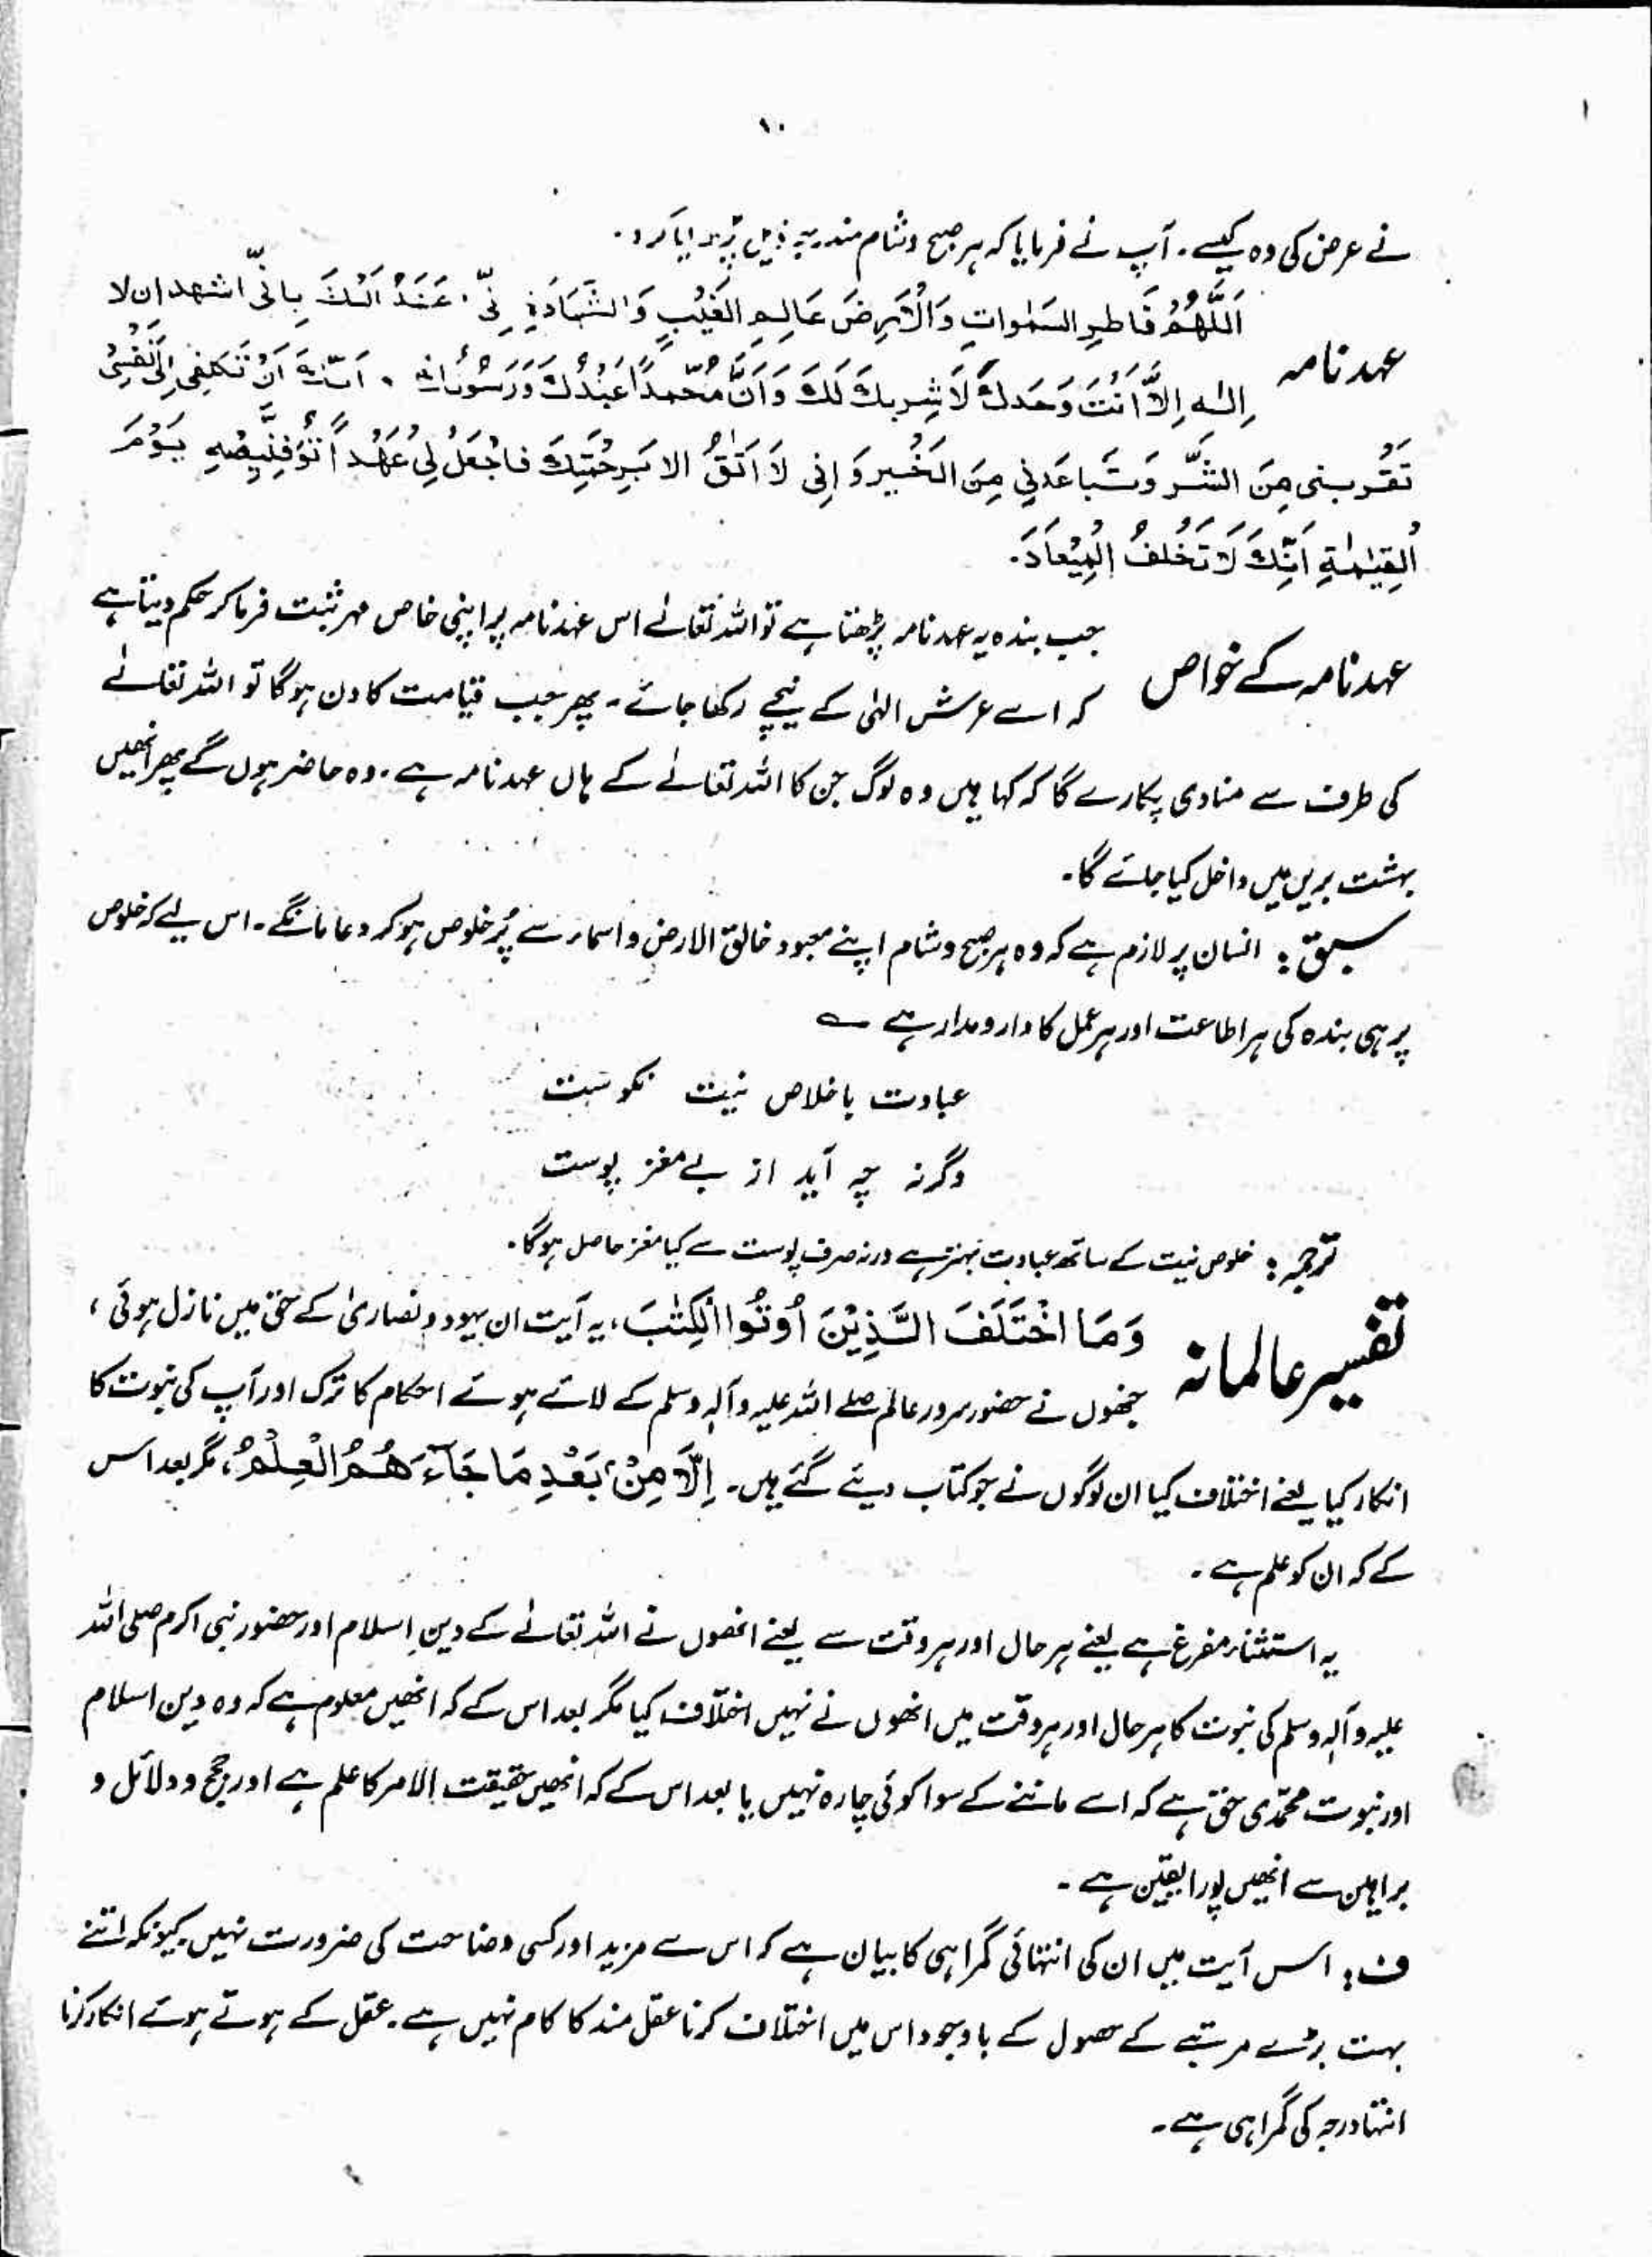 ۱۰
نے عرض کی وہ کیسے۔ آپ نے فرمایا کہ ہر صبح و شام مندرجہ ذیل پڑھ لیا کرو۔
عہد نامہ
اَللّٰهُمَّ فَاطِرِ السَمٰواتِ وَالْاَرِضَ عَالِمِ الغَيْبِ وَالشَّهَادَةِ اِنِّى عَهَدُ اِلَيْكَ بِانّى اشهد ان لا
اِلٰه اِلاَّ اَنْتَ وَحَدكَ لَا شِريكَ لَكَ وَاَنَّ مُحّمداً عَبْدُكَ وَرَسُولُكَ ۔ اَنْ تَكِلْنِى اِلٰى نَفْسِىْ
تَقُربنى مِنَ الشَّر وَتَباعَدنِي مِنَ الخَيرِ وَ اِنى لَا اَثِقُ الا بَرِحْمَتِكَ فاجْعَلْ لِىْ عَهْداً تُوَفِنِّيْهِ يَوْمَ
اُلقِيٰمَةِ اَنِّكَ لَا تَخْلفُ اِلْمِيْعاَدَ۔
عہد نامہ کے خواص
جب بندہ یہ عہد نامہ پڑھتا ہے تو اللہ تعالےٰ اس عہد نامہ پر اپنی خاص مہر ثبت فرما کر حکم دیتا ہے
کہ اسے عرش الہٰی کے نیچے رکھا جائے۔ پھر جب قیامت کا دن ہوگا تو اللہ تعالےٰ
کی طرف سے منادی پکارے گا کہ کہا ہیں وہ لوگ جن کا اللہ تعالےٰ کے ہاں عہد نامہ ہے۔ وہ حاضر ہوں گے پھر انھیں
بہشت بریں میں داخل کیا جائے گا۔
سبق: انسان پر لازم ہے کہ وہ ہر صبح و شام اپنے معبود خالق الارض و اسماء سے پُر خلوص ہو کر دعا مانگے۔ اس لیے کہ خلوص
پر ہی بندہ کی ہر اطاعت اور ہر عمل کا دارومدار ہے ؎
عبادت باخلاص نیت نکوست
وگرنہ چہ آید از بے مغز پوست
ترجمہ: خلوص نیت کے ساتھ عبادت بہتر ہے ورنہ صرف پوست سے کیا مغز حاصل ہوگا۔
تفسیر عالمانہ
وَمَا اخْتَلَفَ الَّذِيْنَ اُوتُوا الْكِتٰبَ، یہ آیت ان یہود و نصاریٰ کے حق میں نازل ہوئی،
جنھوں نے حضور سرور عالم صلے اللہ علیہ وآلہٖ وسلم کے لائے ہوئے احکام کا ترک اور آپ کی نبوت کا
انکار کیا یعنے اختلاف کیا ان لوگوں نے جو کتاب دیئے گئے ہیں۔ اِلَّا مِنْۢ بَعْدِ مَا جَآءَ هُمُ الْعِلْمُ، مگر بعد اس
کے کہ ان کو علم ہے۔
یہ استثناء مفرغ ہے یعنے ہر حال اور ہر وقت سے یعنے انھوں نے اللہ تعالےٰ کے دینِ اسلام اور حضور نبی اکرم صلی اللہ
علیہ وآلہٖ وسلم کی نبوت کا ہر حال اور ہر وقت میں انھوں نے نہیں اختلاف کیا مگر بعد اس کے کہ انھیں معلوم ہے کہ وہ دین اسلام
اور نبوت محمّدی حق ہے کہ اسے ماننے کے سوا کوئی چارہ نہیں یا بعد اس کے کہ انھیں حقیقت الامر کا علم ہے اور حجج و دلائل و
براہین سے انھیں پورا یقین ہے۔
ف: اس آیت میں ان کی انتہائی گمراہی کا بیان ہے کہ اس سے مزید اور کسی وضاحت کی ضرورت نہیں کیونکہ اتنے
بہت بڑے مرتبے کے حصول کے باوجود اس میں اختلاف کرنا عقل مند کا کام نہیں ہے۔ عقل کے ہوتے ہوئے انکار کرنا
انتہا درجہ کی گمراہی ہے۔